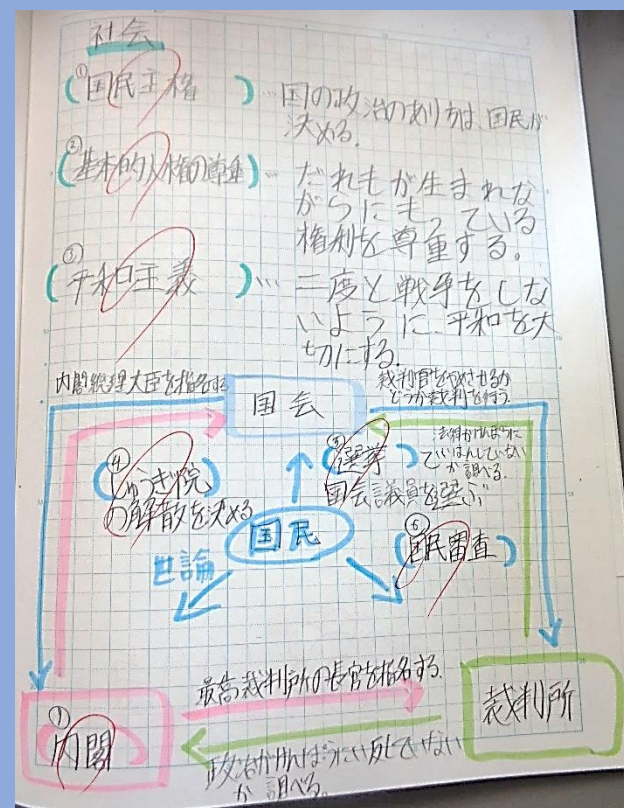 社会
(①国民主権)… 国の政治のあり方は、国民が
決める。
(②基本的人権の尊重)… だれもが生まれな
がらにもっている
権利を尊重する。
(③平和主義)… 二度と戦争をしな
いように、平和を大
切にする。
内閣総理大臣を指名する
国会
裁判官をやめさせるか
どうか裁判を行う。
(④しゅうぎ院)
の解散を決める
(⑤選挙)
国会議員を選ぶ
法律がけんぽうに
ていはんしていない
か調べる。
国民
世論
(⑥国民審査)
最高裁判所の長官を指名する。
⑦内閣
裁判所
政治がけんぽうにい反していない
か調べる。